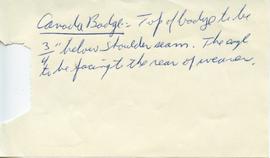 Canada Badge:- Top of badge to be
3/4" below shoulder seam. The
to be facing to the rear of wearer.